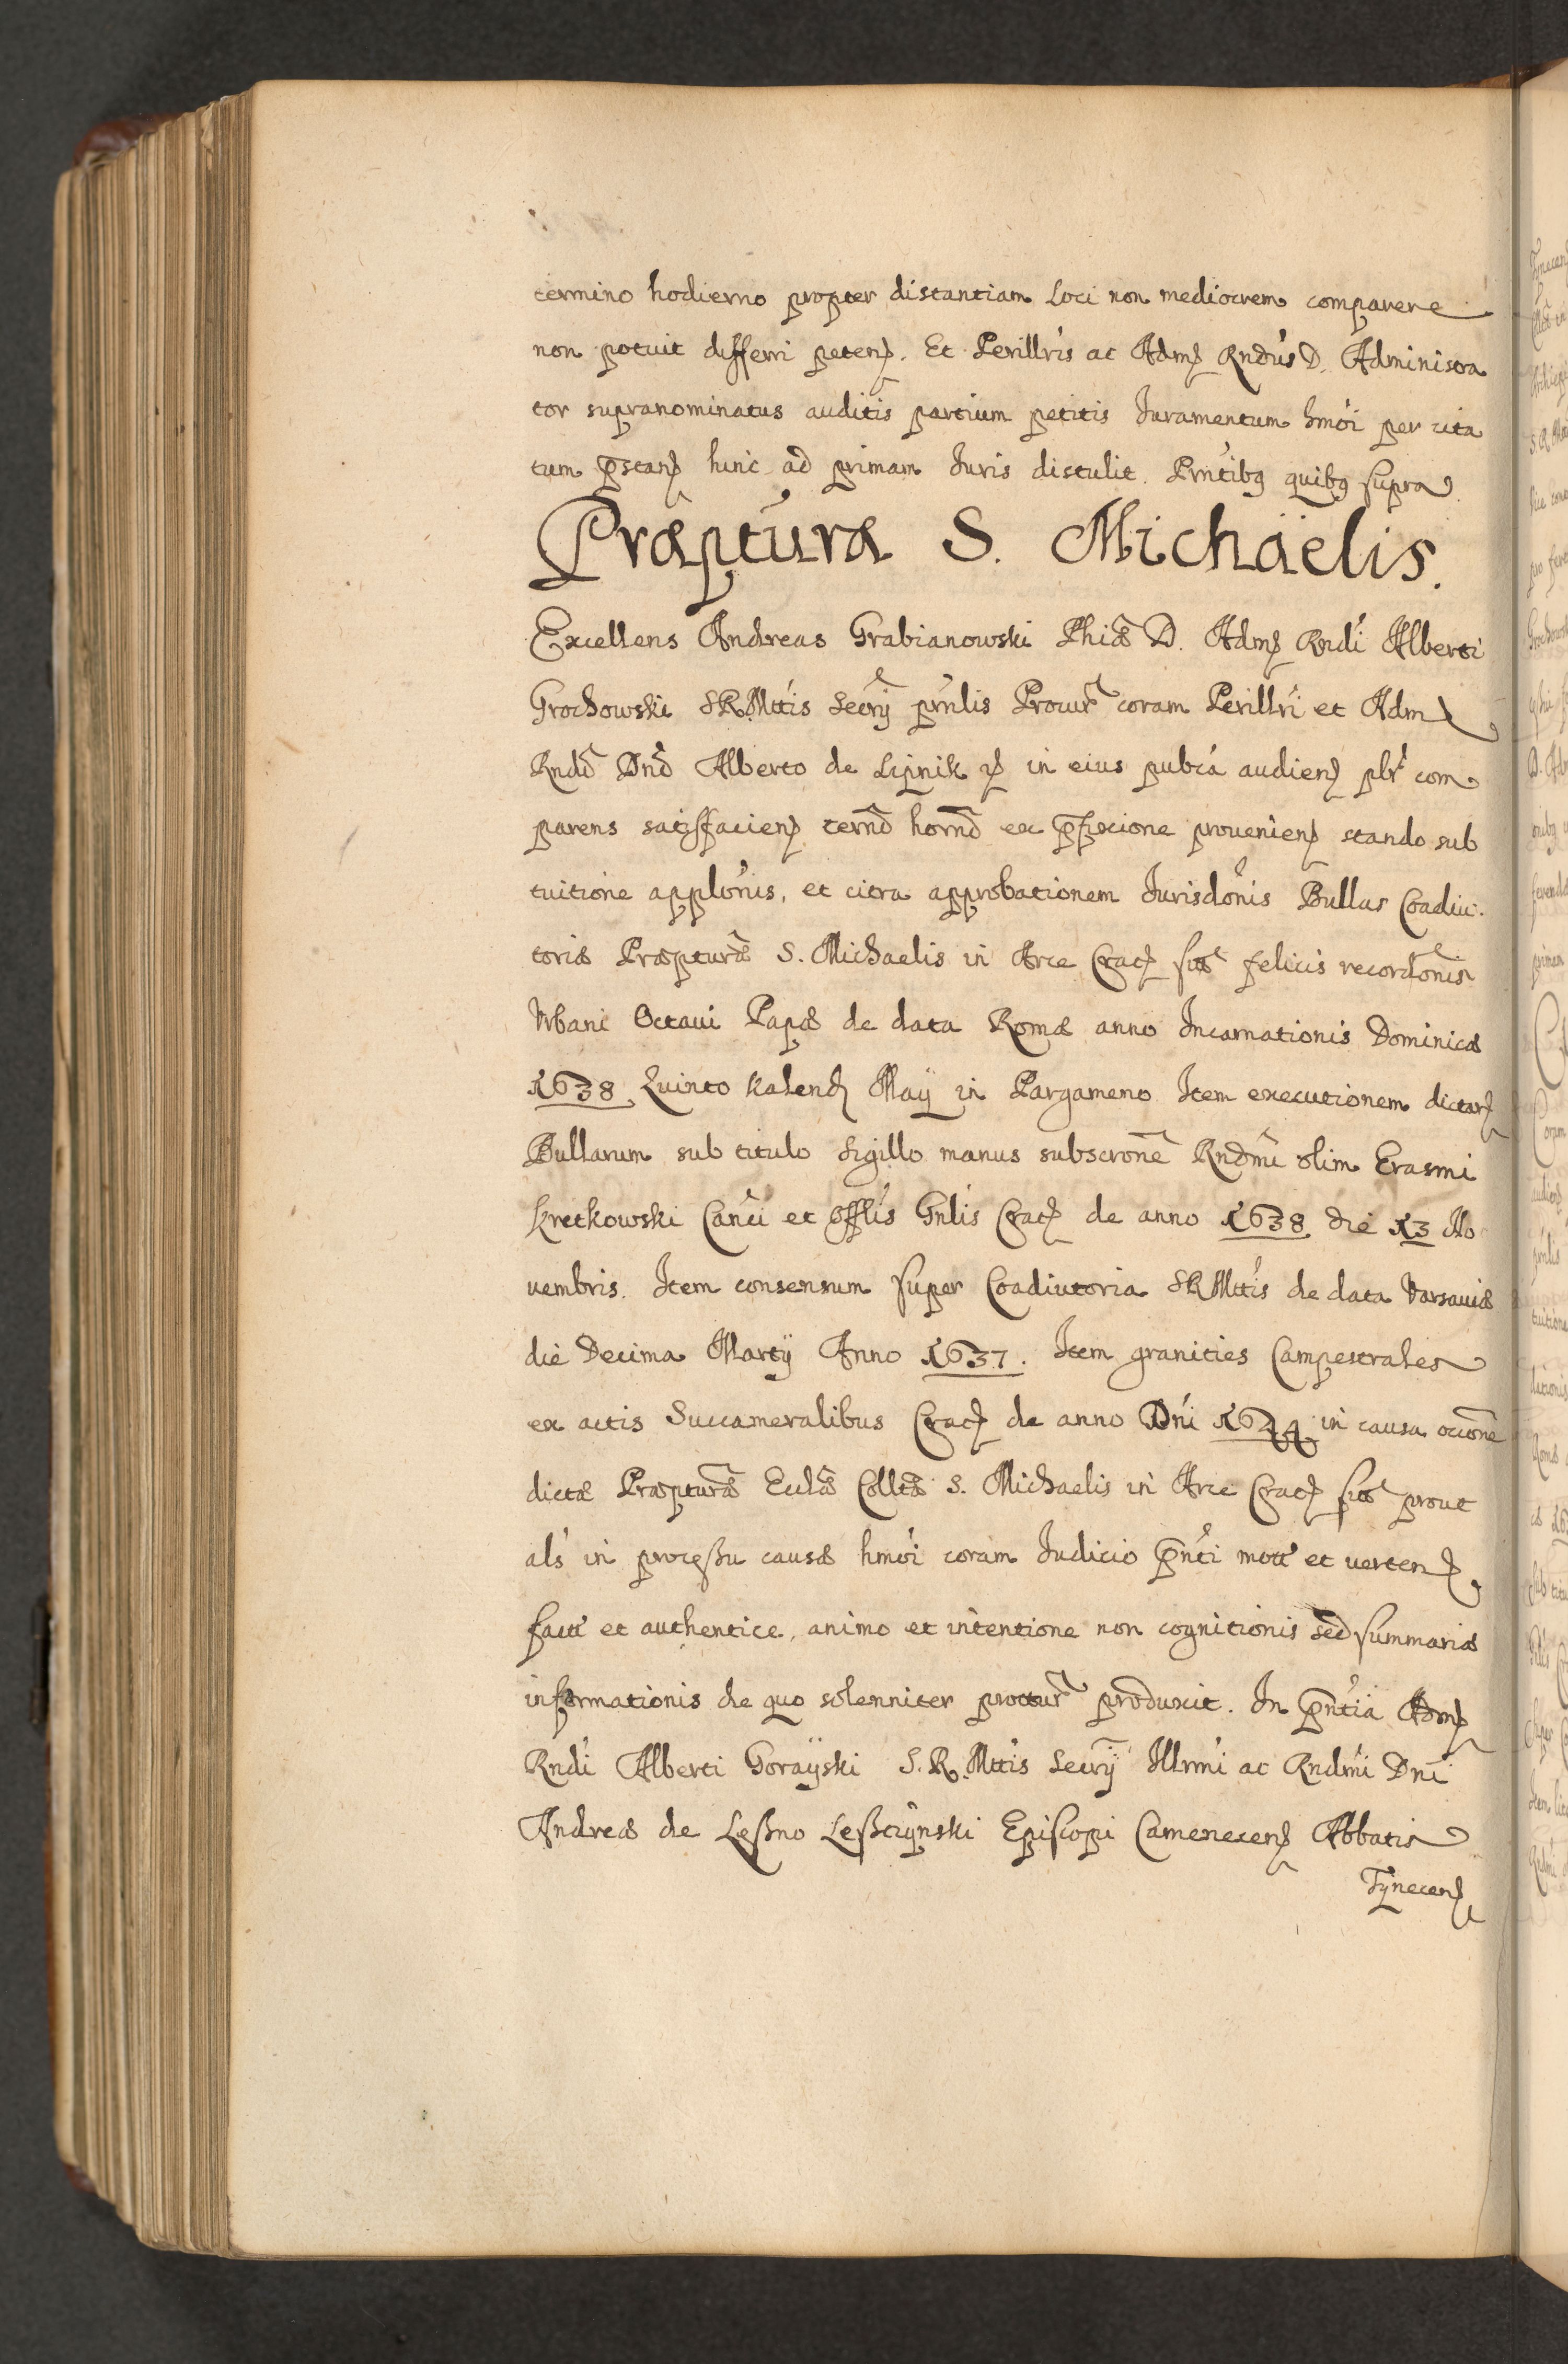 termino hodierno propter distantiam Loci non mediocrem comparere
non potuit differri peteñ. Et Perillris ac Adm̃ Rndus D. Administra
tor supranominatus auditis partium petitis Juramentum hmoi per cita
tum p̃stañ hinc ad primam Juris distulit. Prntibq quibq supra.
Præptura S. Michaëlis.
Excellens Andreas Grabianowski Phiæ D. Adm̃ Rndi Alberti
Grochowski SRMttis Secrij prnlis Procur̃ coram Perillri et Adm̃
Rndo Dno Alberto de Lipnik in eius publca audieñ plr com
parens satisfacieñ termo horno ex p̃fixione prouenieñ stando sub
tuitione applonis, et citra approbationem Jurisdonis Bullas Coadiu
toriæ Præpturæ S. Michaelis in Arce Crac̃ sitæ felicis recordonis
Vrbani Octaui Papæ de data Romæ anno Incarnationis Dominicæ
1638 Quinto Kalend Maij in Pargameno Item executionem dictar̃
Bullarum sub titulo Sigillo manus subscrone Rndmi olim Erasmi
Kretkowski Canci et Offlis Gnlis Crac̃ de anno 1638 die 13 No
uembris. Item consensum super Coadiutoria SRMttis de data Varsauiæ
die Decima Martij Anno 1637. Item granities Campestrales
ex actis Succameralibus Crac̃ de anno Dni in causa ocione
dictæ Præpturæ Eclæ Colltæ S. Michaelis in Arce Crac̃ sitæ prout
als in processu causæ hmoi coram Judicio p̃nti mott et verteñ
facti et authentice, animo et intentione non cognitionis sed summariæ
informationis de quo solenniter prottur produxit. In p̃ntia Adm̃
Rndi Alberti Gorayski S. R. Mttis Secrij Illrmi ac Rndmi Dni
Andreæ de Leßno Leßczÿnski Episcopi Cameneceñ Abbatis
Tÿneceñ